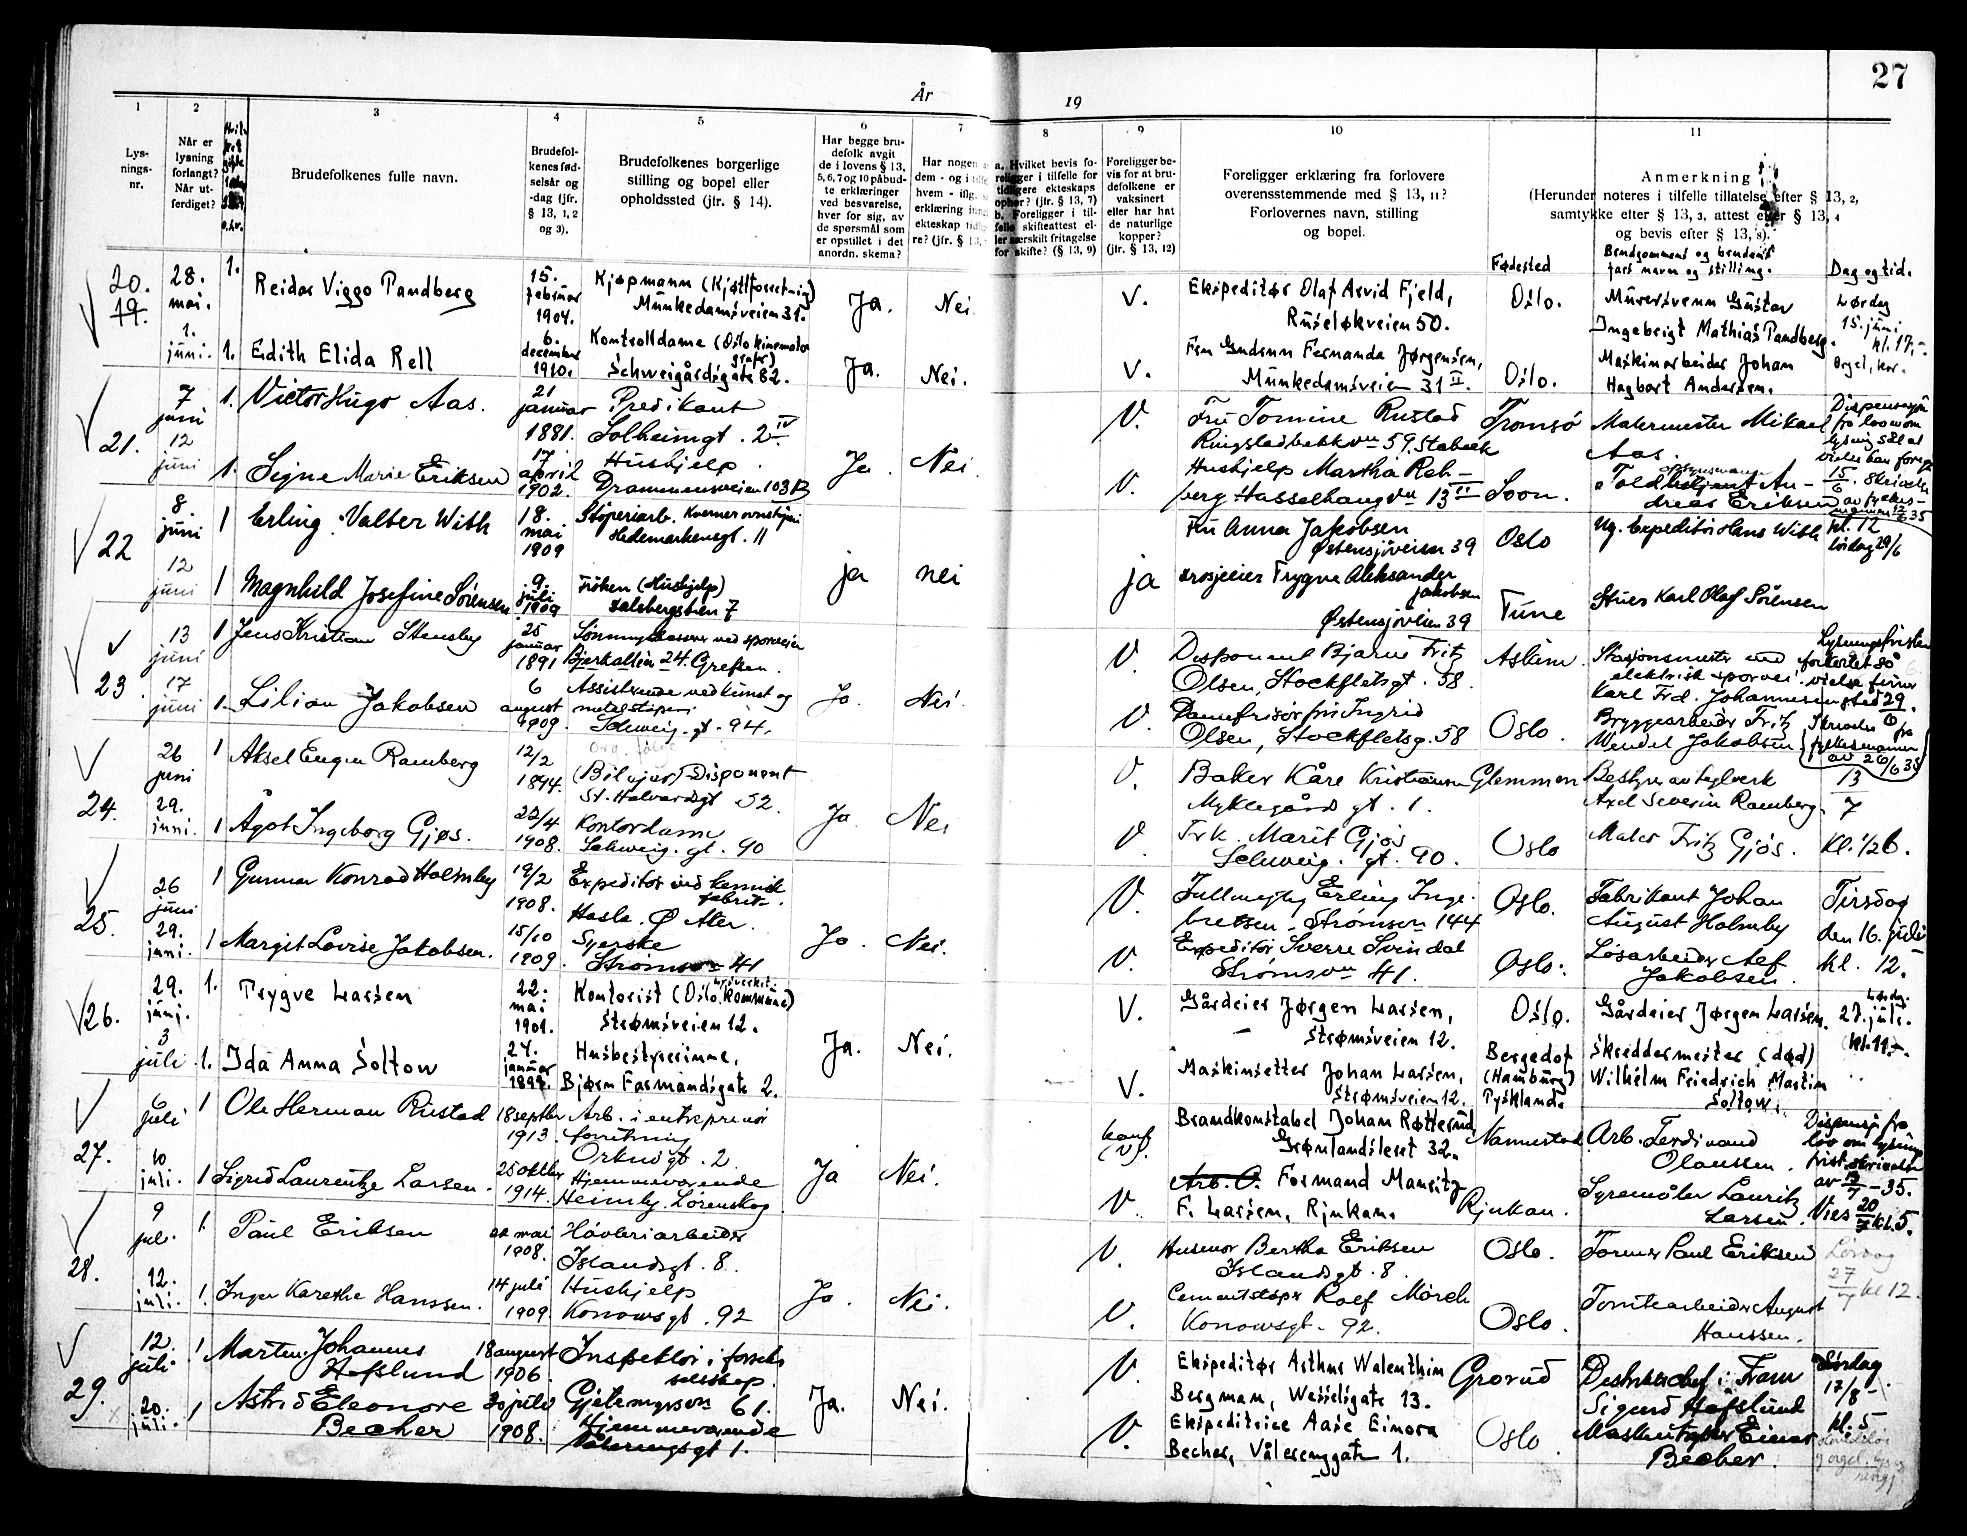 27
År
19
1
Lys-
nings-
nr.
2
Når er
lysning
forlangt?
Når ut-
ferdiget?
3
Brudefolkenes fulle navn.
4
Brudefol-
kenes fød-
selsår og
-dag (jfr.
§ 13, 1, 2
og 3).
5
Brudefolkenes borgerlige
stilling og bopel eller
opholdssted (jfr. § 14).
6
Har begge bru-
defolk avgit
de i lovens § 13,
5, 6, 7 og 10 påbud-
te erklæringer
ved besvarelse,
hver for sig, av
de spørsmål som
er opstillet i det
anordn. skema?
7
Har nogen a
dem - og i
hvem - iflg.
erklæring
ekteskap
re? (jfr. § 13,
8
a. Hvilket bevis fo-
religger i tilfelle for
tidligere ekteskaps
ophør? (jfr. § 13, 7)
b. Foreligger i til-
felle skifteattest el-
ler særskilt fritagelse
for skifte? (§ 13, 9)
9
Foreligger be-
vis for at bru-
defolkene er
vaksinert
eller har hat
de naturlige
kopper?
(jfr. § 13, 12)
10
Foreligger erklæring fra forlovere
overensstemmende med § 13, 11?
Forlovernes navn, stilling
og bopel.
Fødested
11
Anmerkning
(Herunder noteres i tilfelle tillatelse efter § 13, 2,
samtykke efter § 13, 3, attest efter § 13, 4
og bevis efter § 13, 8).
Brudgommens og brudens
fars navn og stilling.
Dag og tid.
20.
19.
28.
mai.
1.
Reidar Viggo Pandberg
15.
februar
1904.
Kjøpmann
Munkedamsveien 31.
Ja.
Nei.
V.
Ekspeditør Olaf Arvid Fjeld,
Ruseløkveien 50.
Oslo.
Murersvenn Gustav
Ingebrigt Mathias Pandberg.
Lørdag
15. juni
kl. 17,-
1.
juni.
1.
Edith Elida Rell
6.
december
1910.
Kontrolldame (Oslo kinemato-
grafer)
Schweigårdsgate 82.
Ja.
Nei.
V.
Fru Gudrun Fernanda Jørgensen,
Munkedamsveien 31 II.
Oslo.
Maskinarbeider Johan
Hagbart Andersen.
Orgel, kor.
21.
7
juni
1.
Victor Hugo Aas.
21
januar
1881.
Predikant
Solheimgt. 2 IV
V.
Fru Tomine Rustad
Ringstadbekkvn 59. Stabæk
Tromsø
Malermester Mikael
Aas.
12
juni
1.
Signe Marie Eriksen
17
april
1902.
Hushjelp.
Drammensveien 103 B
Ja
Nei.
V.
Hushjelp Martha Reh-
berg Hasselhaugvn 13 II
Soon.
dreas Eriksen
22
8.
juni
1
Erling Valter With
18.
mai
1909
Støperiarb.
Hedemarkensgt. 11
Fru Anna Jakobsen
Østensjøveien 39
Oslo
Ug. Expeditør Hans With
kl. 12
lördag 29/6
12
juni
1
Magnhild Josefine Sörensen
9.
juli
1909
Fröken (Hushjelp)
7
ja
nei
ja
Drosjeeier Trygve Aleksander
Jakobsen
Østensjöveien 39
Tune
Stuer Karl Olaf Sörensen
23.
13
juni
1
Jens Kristian Stensby
25
januar
1891
Bjerkalleen 24. Grefsen.
V.
Disponent Bjarne Fritz
Olsen, Stockfletsgt. 58.
Askim.
Stasjonsmester ved
elektrisk sporvei.
Karl Frd. Johannesen
17
juni
1.
Lilian Jakobsen
6
august
1909.
Assisterende ved kunst og
metalstøperi
Schweig. gt. 94.
Ja.
Nei.
V.
Damefrisør fru Ingrid
Olsen, Stockfletsg. 58
Oslo.
Bryggearbeider Fritz
Wendel Jakobsen
24.
26
juni
1
Aksel Eugen Ramberg
12/2
1894.
(Bilejer) Disponent
St. Halvardsgt 52.
V.
Baker Kåre Kristiansen
Myklegård gt. 1.
Glemmen
Bestyrer av teglverk
Axel Severin Ramberg.
13
7
29.
juni.
1
Ågot Ingeborg Gjøs.
22/4
1908.
Kontordame
Schweig. gt. 90
Ja.
Nei
V.
Frk. Marit Gjøs
Schweig. gt. 90.
Oslo
Maler Fritz Gjøs.
Kl. 1/2 6.
25.
26
juni
1
Gunnar Konrad Holmby
19/2
1908.
Expeditør ved kemisk
fabrik.
Hasle. Ø Aker.
V.
Fullmektig Erling Inge-
bretsen. Strømsvn 144
Oslo.
Fabrikant Johan
August Holmby
Tirsdag
den 16. juli
29.
juni.
1
Margit Lovise Jakobsen.
15/10
1909.
Syerske
Strømsvn 41
Ja.
Nei.
V.
Expeditør Sverre Svindal
Strømsvn 41.
Oslo.
Løsarbeider Alf
Jakobsen.
kl. 12.
26.
29.
juni.
1.
Trygve Larsen
22.
mai
1901.
Kontorist (Oslo kommune)
Strømsveien 12.
V.
Gårdeier Jørgen Larsen,
Strømsveien 12.
Oslo.
Gårdeier Jørgen Larsen.
Lørdag.
27. juli.
kl. 11,-.
3
juli
1.
Ida Anna Soltow
24.
januar
1899.
Husbestyrerinne,
Bjørn Farmandsgate 2.
Ja.
Nei.
V.
Maskinsetter Johan Larsen,
Strømsveien 12.
Bergedof
(Hamburg)
Tyskland.
Skreddermester (død)
Wilhelm Friedrich Martin
Soltow.
27.
6
juli
1
Ole Herman Rustad
18 septbr
1913.
Arb. i entreprenør
forretning
Orknøgt. 2
konf
(V).
Brandkonstabel Johan Røtterud,
Grønlandsleret 32.
Nannestad
Arb. Ferdinand
Olaussen.
10
juli.
1
Sigrid Laurentze Larsen.
25 oktbr
1914.
Hjemmeværende
Heimly. Lørenskog
Ja
Nei.
V.
Arb. O. Formand Mauritz
F. Larsen, Rjukan.
Rjukan.
Syremåler Lauritz
Larsen.
Vies 20/7 kl. 5.
28.
9
juli.
1.
Paul Eriksen
22 mai
1908.
Høvleriarbeider
Islandsgt. 8.
V.
Husmor Bertha Eriksen
Islandsgt. 8.
Oslo.
Former Paul Eriksen
Lørdag
27
7
kl 12.
12.
juli.
1.
Inger Karethe Hanssen.
14 juli
1909.
Hushjelp
Konowsgt. 92
Ja.
Nei.
V.
Cementstøper Rolf Mörch
Konowsgt. 92.
Oslo.
Tomtearbeider August
Hanssen.
29.
12.
juli
1
Martin Johannes
Hafslund
18 august
1906.
Inspektør i forsikr.
selskap.
Gjetemyrsvn 61.
V.
Ekspeditør Arthur Walenthin
Bergman, Wesselsgate 13.
Grorud
Distriktschef i Fram
Sigurd Hafslund
Lördag
17/8 -
kl. 5
20.
juli.
1
Astrid Eleonore
Becher
30 juli
1908.
Hjemmeværende
Vålerenggt 1.
Ja.
Nei.
V.
Ekspeditrice Aase Einora
Becher, Vålerenggate 1.
Oslo.
Einar
Becher.